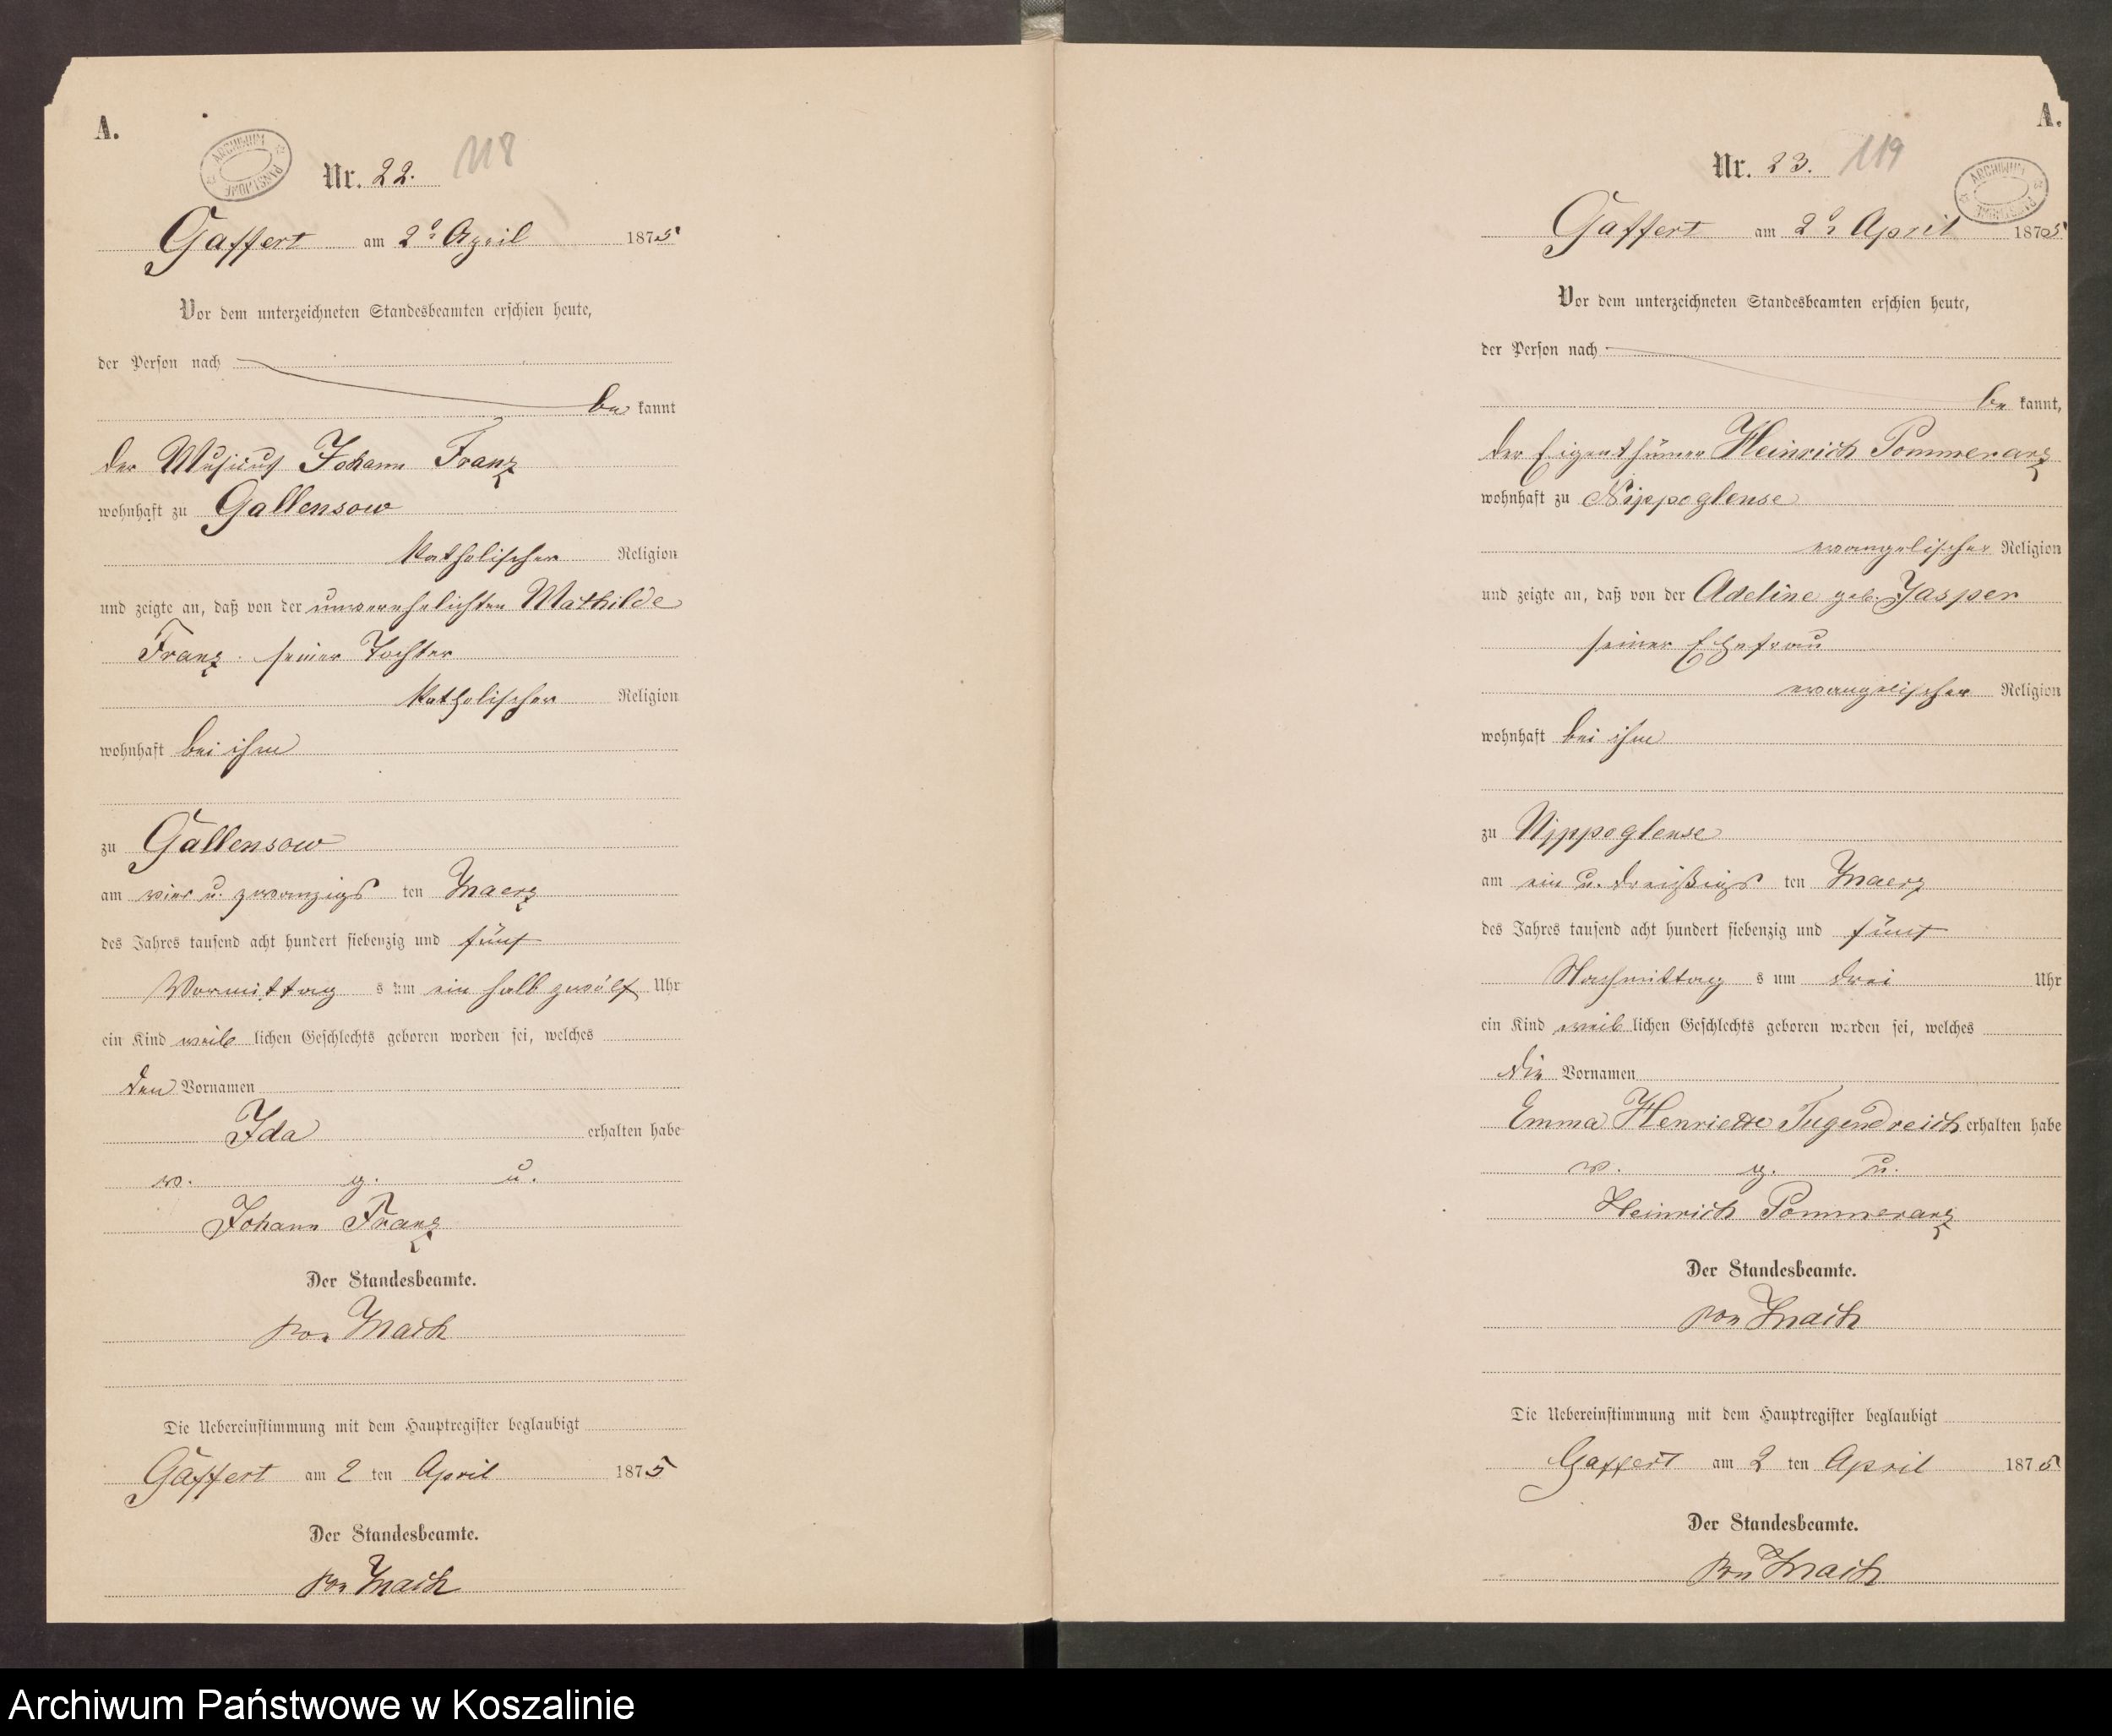 A.
ARCHIWUM PAŃSTWOWE
Nr. 22.
118
Gaffert am 2t April 1875
Vor dem unterzeichneten Standesbeamten erschien heute,
der Person nach
be kannt
der Musicus Johann Franz
wohnhaft zu Gallensow
katholischer Religion
und zeigte an, daß von der unverehelichten Mathilde
Franz seiner Tochter
katholischer Religion
wohnhaft bei ihm
zu Gallensow
am vier u. zwanzigs ten Maerz
des Jahres tausend acht hundert siebenzig und fünf
Vormittag s um ein halb zwölf Uhr
ein Kind weib lichen Geschlechts geboren worden sei, welches
den Vornamen
Ida erhalten habe
v. g. u.
Johann Franz
Der Standesbeamte.
von Mach
Die Uebereinstimmung mit dem Hauptregister beglaubigt
Gaffert am 2 ten April 1875
Der Standesbeamte.
von Mach
A.
Nr. 23.
119
ARCHIWUM PAŃSTWOWE
Gaffert am 2t April 1875
Vor dem unterzeichneten Standesbeamten erschien heute,
der Person nach
be kannt,
der Eigenthümer Heinrich Pommeranz
wohnhaft zu Nippoglense
evangelischer Religion
und zeigte an, daß von der Adeline geb. Jasper
seiner Ehefrau
evangelischer Religion
wohnhaft bei ihm
zu Nippoglense
am ein u. dreißigs ten Maerz
des Jahres tausend acht hundert siebenzig und fünf
Nachmittag s um drei Uhr
ein Kind weib lichen Geschlechts geboren worden sei, welches
die Vornamen
Emma Henriette Tugendreich erhalten habe
v. g. u.
Heinrich Pommeranz
Der Standesbeamte.
von Mach
Die Uebereinstimmung mit dem Hauptregister beglaubigt
Gaffert am 2 ten April 1875
Der Standesbeamte.
von Mach
Archiwum Państwowe w Koszalinie